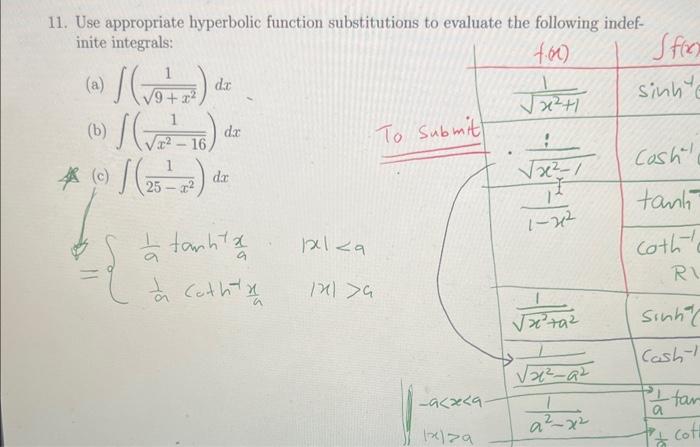 11. Use appropriate hyperbolic function substitutions to evaluate the following indef-
inite integrals:
(a) ∫(1/√(9 + x²)) dx
(b) ∫(1/√(x² − 16)) dx
(c) ∫(1/(25 − x²)) dx
= { 1/a tanh⁻¹ x/a |x| < a
1/a coth⁻¹ x/a |x| > a
To Submit
f(x) ∫f(x)
1/√(x²+1) sinh⁻¹
1/√(x²−1) cosh⁻¹
1/(1−x²) tanh⁻
coth⁻¹
1/√(x²+a²) sinh⁻¹
1/√(x²−a²) cosh⁻¹
−a<x<a 1/(a²−x²) 1/a tan
|x|>a 1/a cot